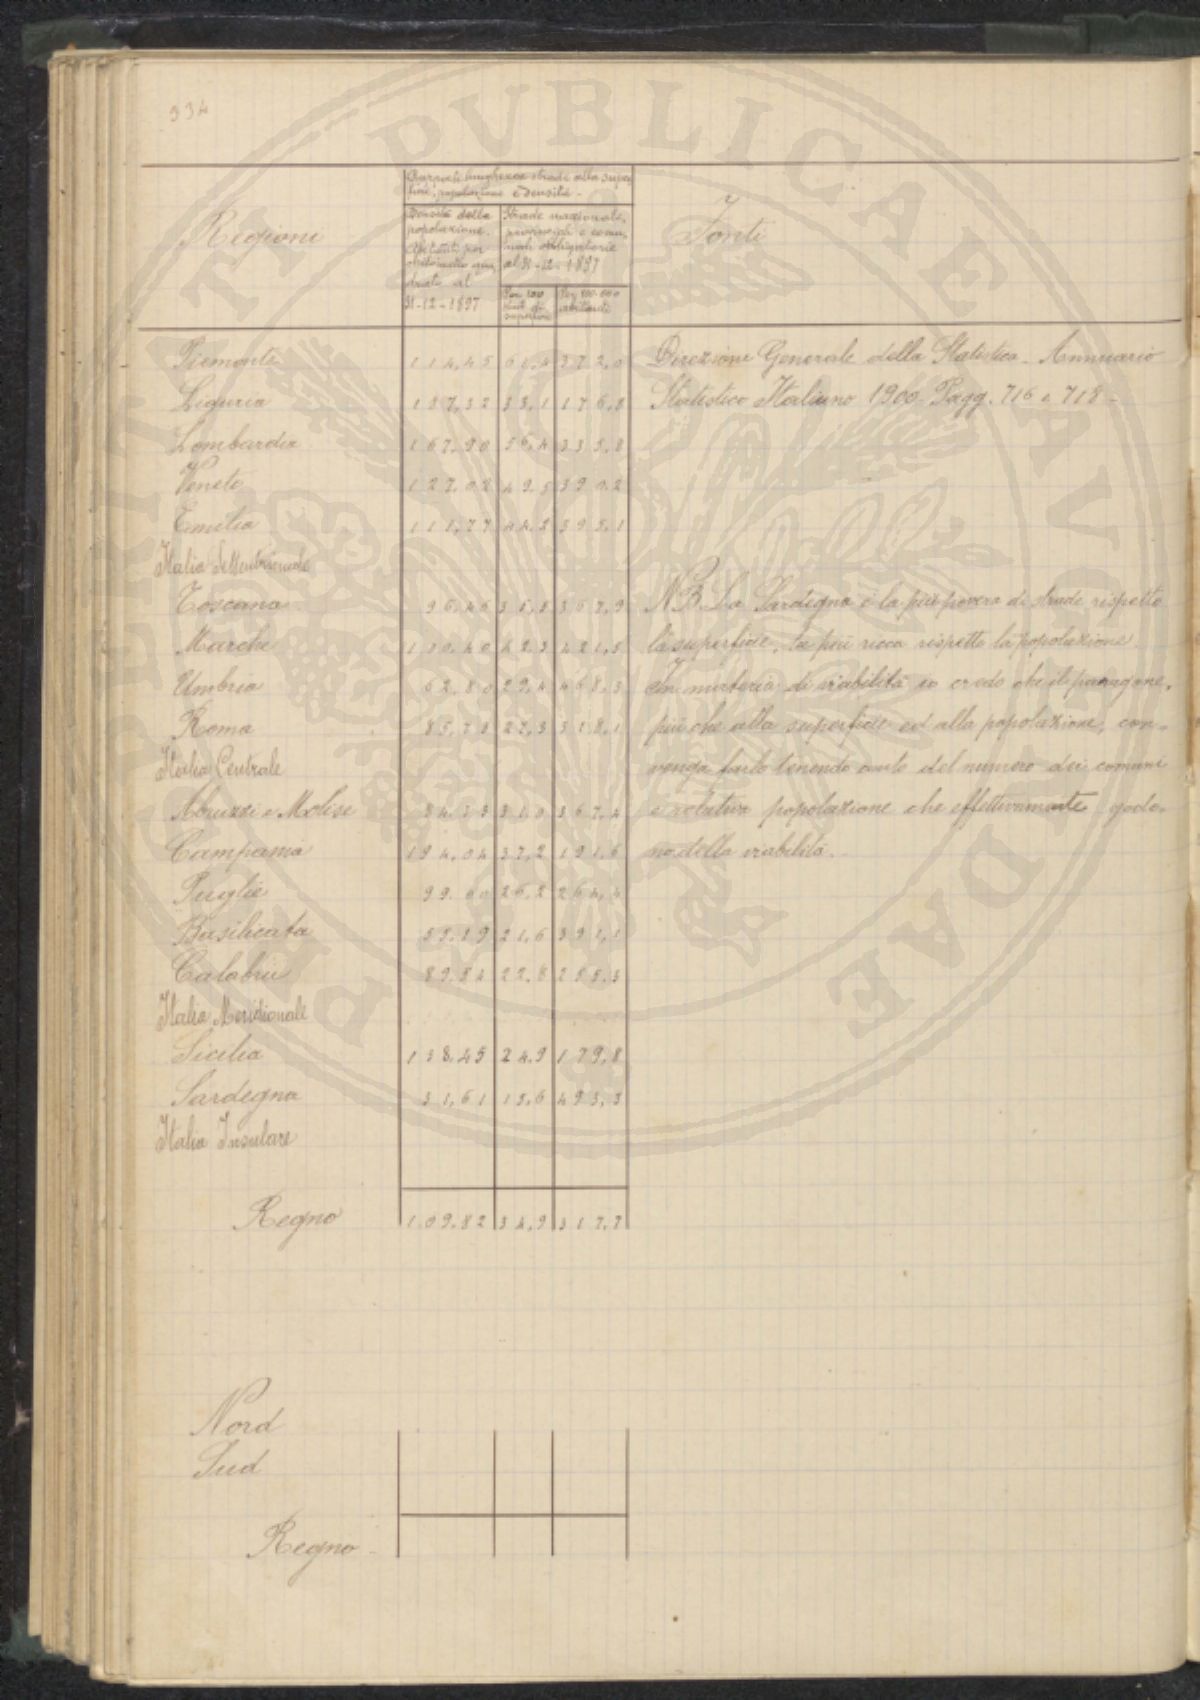 334
Rapporti lunghezza strade alla super
ficie, popolazione e densità -
Regioni
Densità della
popolazione.
Abitanti per
chilometro qua,
drato al
31-12-1897
Strade nazionali,
provinciali e comu,
nali obbligatorie
al 31-12-1897
Per 100
di
superficie
Per 100.000
abitanti
Fonti
Piemonte 114,45 61,4 372,0 Direzione Generale della Statistica - Annuario
Liguria 187,32 33,1 176,8 Statistico Italiano 1900 - Pagg. 716 e 718 -
Lombardia 167,90 56,4 335,8
Veneto 127,02 49,5 390,2
Emilia 111,77 44,2 395,1
Italia Settentrionale
Toscana 96,46 35,5 367,9 N.B. La Sardegna è la più povera di strade rispetto
Marche 100,40 42,3 421,5 la superficie, la più ricca rispetto la popolazione.
Umbria 62,80 29,4 468,3 In materia di viabilità io credo che il paragone,
Roma 85,78 27,3 318,1 più che alla superficie ed alla popolazione, con-
Italia Centrale venga farlo tenendo conto del numero dei comuni
Abruzzi e Molise 84,33 31,0 367,4 e relativa popolazione che effettivamente godo-
Campania 194,04 37,2 191,6 no della viabilità.
Puglie 99,60 26,2 264,4
Basilicata 55,19 21,6 391,1
Calabrie 89,84 22,8 255,3
Italia Meridionale
Sicilia 138,45 24,9 179,8
Sardegna 31,61 15,6 493,3
Italia Insulare
Regno 109,82 34,9 317,7
Nord
Sud
Regno -